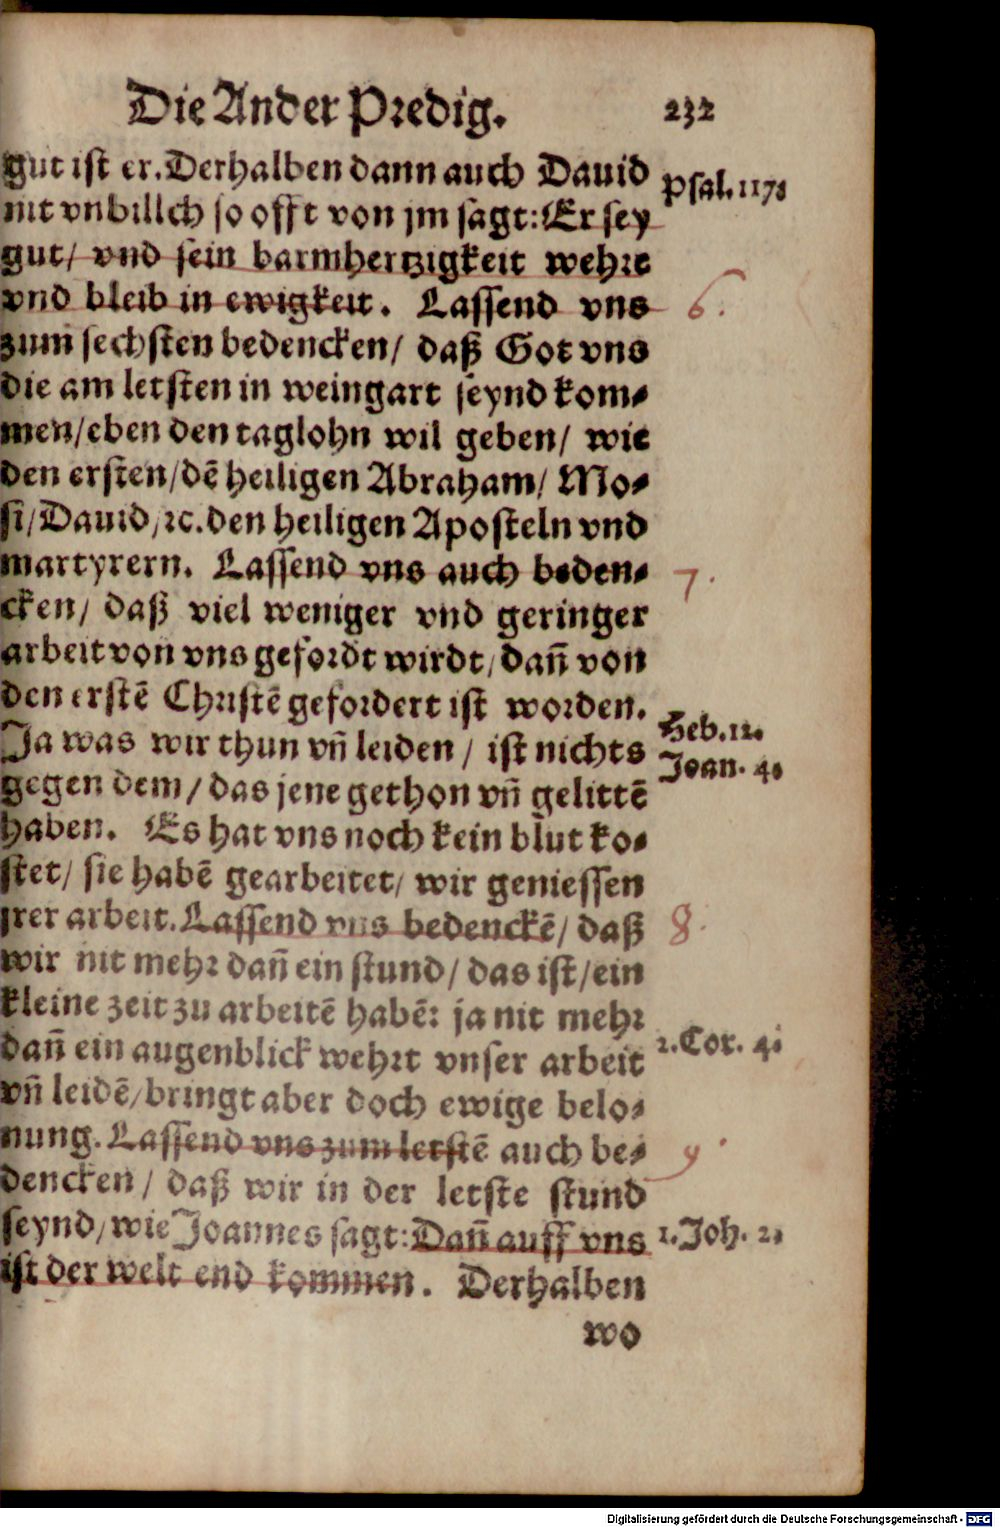 Die Ander Predig. 232
gut ist er. Derhalben dann auch Dauid
nit vnbillch so offt von jm sagt: Er sey
Psal. 117.
gut/ vnd sein barmhertzigkeit wehrt
vnd bleib in ewigkeit. Lassend vns
6.
zum sechsten bedencken/ daß Got vns
die am letsten in weingart seynd kom⸗
men/ eben den taglohn wil geben/ wie
den ersten/ dē heiligen Abraham/ Mo⸗
si/ Dauid/ ꝛc. den heiligen Aposteln vnd
martyrern. Lassend vns auch beden⸗
7.
cken/ daß viel weniger vnd geringer
arbeit von vns gefordt wirdt/ dañ von
den erstē Christē gefordert ist worden.
Ja was wir thun vñ leiden/ ist nichts
Heb. 12.
Joan. 4.
gegen dem/ das jene gethon vñ gelittē
haben. Es hat vns noch kein blut ko⸗
stet/ sie habē gearbeitet/ wir geniessen
jrer arbeit. Lassend vns bedenckē/ daß
8.
wir nit mehr dañ ein stund/ das ist/ ein
kleine zeit zu arbeitē habē: ja nit mehr
dañ ein augenblick wehrt vnser arbeit
2. Cor. 4.
vñ leidē/ bringt aber doch ewige belo⸗
nung. Lassend vns zum letstē auch be⸗
9.
dencken/ daß wir in der letste stund
seynd/ wie Joannes sagt: Dañ auff vns
1. Joh. 2.
ist der welt end kommen. Derhalben
wo
Digitalisierung gefördert durch die Deutsche Forschungsgemeinschaft - DFG